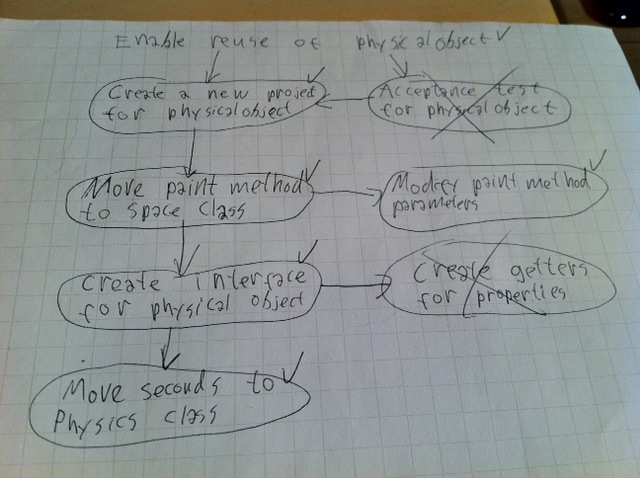 Enable reuse of physicalobject ✓
Create a new project
for physicalobject
Acceptance test
for physicalobject
Move paint method
to space class
Modify paint method
parameters
Create interface
for physical object
Create getters
for properties
Move seconds to
Physics class